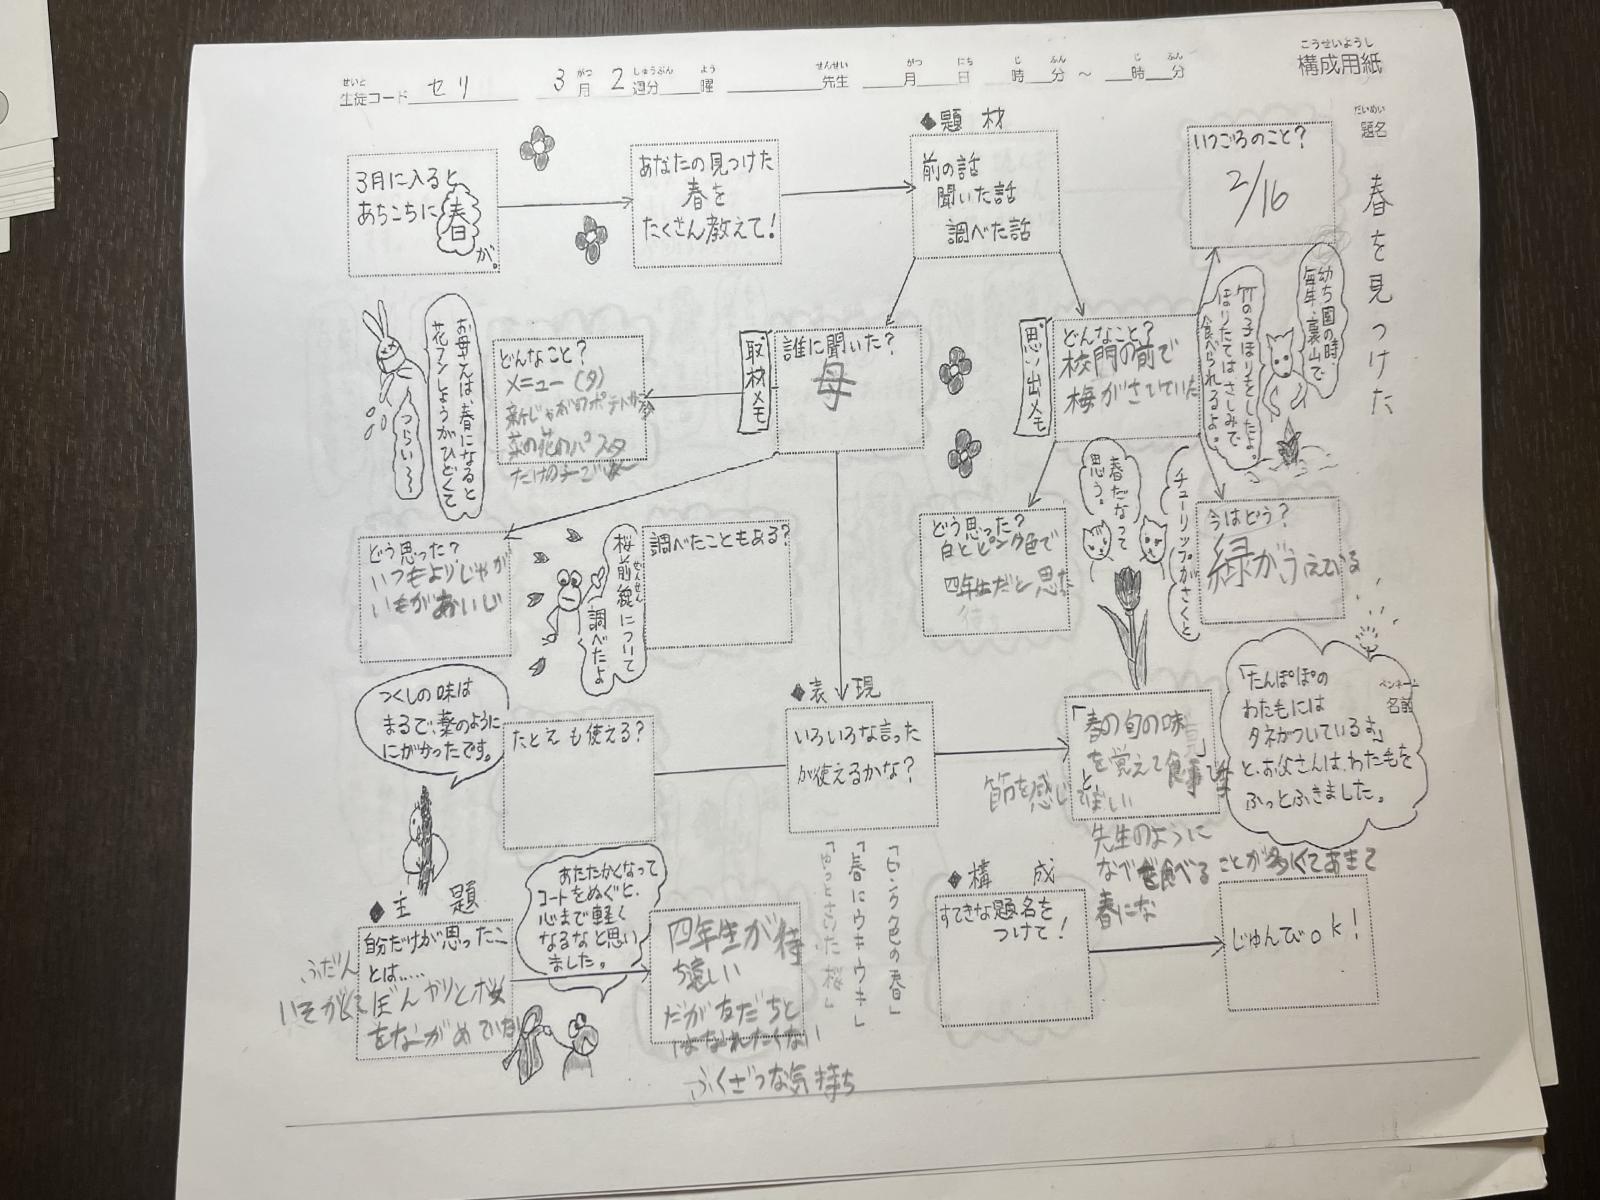 こうせいようし
構成用紙
せいと がつ しゅうぶん よう せんせい がつ にち じ ふん じ ふん
生徒コード セリ 3月 2週分 曜 先生 月 日 時 分 ~ 時 分
だいめい
題名
春を見つけた
3月に入ると
あちこちに春
が。
あなたの見つけた
春を
たくさん教えて!
◆題 材
前の話
聞いた話
調べた話
いつごろのこと?
2/16
幼ち園の時、
毎年、裏山で
竹の子ほりをしたよ。
ほりたてはさしみで
食べられるよ。
思い出メモ
どんなこと?
校門の前で
梅がさいていた
取材メモ
誰に聞いた?
母
どんなこと?
メニュー(夕)
新じゃがのポテト
菜の花のパスタ
たけの子ごはん
お母さんは、春になると
花フンしょうがひどくて
つらい〜
どう思った?
いつもよりじゃが
いもがおいし
桜前線について
ぜんせん
調べたよ
調べたこともある?
どう思った?
白とピンク色で
四年生だと思
待
春だなって
思う。
チューリップがさくと
今はどう?
緑がうえている
ペンネーム
名前
「たんぽぽの
わたもには
タネがついているす」
と、お父さんは、わた毛を
ふっとふきました。
つくしの味は
まるで、薬のように
にがかったです。
たとえも使える?
◆表 現
いろいろな言った
が使えるかな?
「春の旬の味」
を覚えて食事
節を感じ
先生のように
なぞ食べることが多くてあきて
春にな
「ピンク色の春」
「春にウキウキ」
◆主 題
自分だけが思ったこ
とは.....
ふだん
いそがしくてぼんやりと桜
をながめていない
あたたかくなって
コートをぬぐと、
心まで軽く
なるなと思い
ました。
四年生が待
ち遠しい
だが友だちと
はなれたくない
ふくざつな気持ち
◆構 成
すてきな題名を
つけて!
じゅんびok!